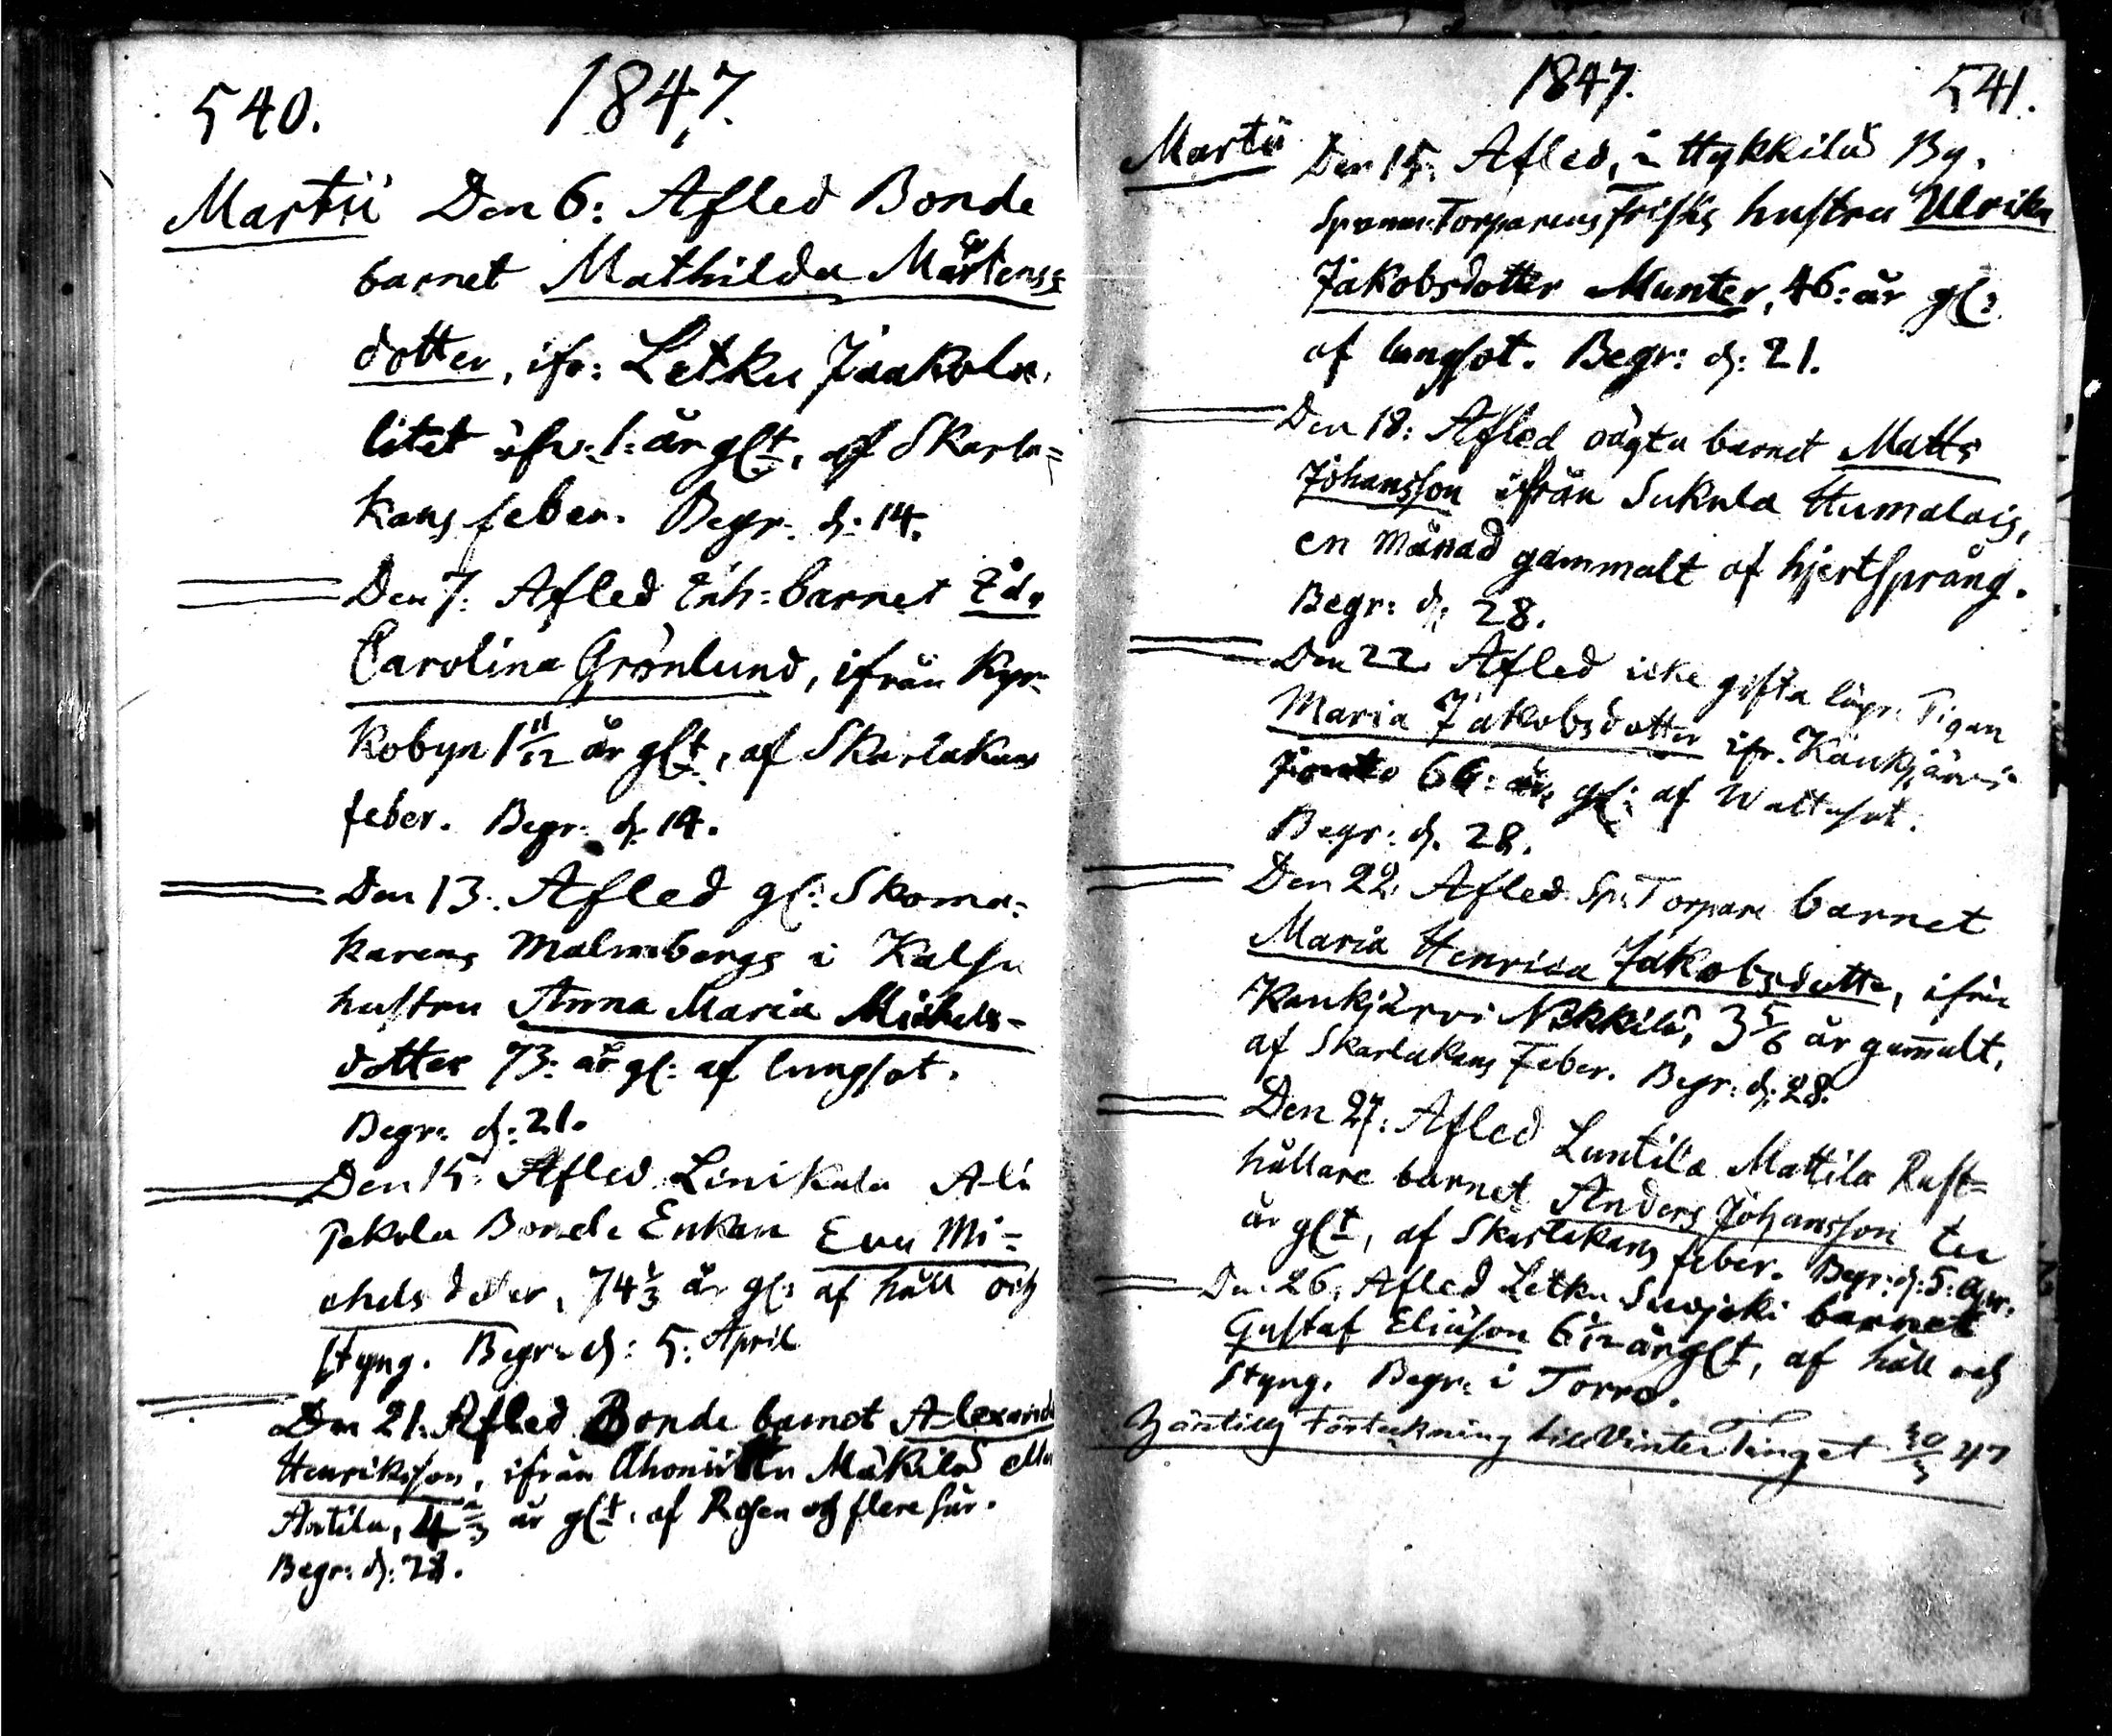 540. 1847.
Martii Den 6: Afled Bonde
barnet Mathilda Mårtens=
dotter, ifr: Letku Jaakola,
litet öfv: 1: år glt, af Skarla=
kans feber. Begr. d: 14.
Den 7: Afled Inh: barnet Ida
Carolina Grönlund, ifrån Kyr=
kobyn 1 11/12 år glt, af Skarlakans
feber. Begr. d: 14.
Den 13: Afled gl: Skoma=
karens Malmbergs i Kalsu
hustru Anna Maria Michels=
dotter 73: år gl: af lungsot.
Begr: d: 21.
Den 15: Afled Linikala Ali
Pekola Bonde Enkan Eva Mi=
chelsdotter, 74 1/3 år gl: af håll och
styng. Begr: d: 5: April
Den 21: Afled Bonde barnet Alexander
Henriksson, ifrån Ahoniittu Mäkilä eller
Antila, 4 2/3 år glt, af Rosen och flere sår.
Begr: d: 28.
1847. 541.
Martii Den 15: Afled, i Hykkilä By.
Torparens Frisks hustru Ulrika
Jakobsdotter Munter, 46: år gl:
af lungsot. Begr: d: 21.
Den 18: Afled oägta barnet Matts
Johansson ifrån Sukula Humalais,
en Månad gammalt af hjertsprång.
Begr: d: 28.
Den 22 Afled icke gifta Pigan
Maria Jakobsdotter ifr. Kaukjärvi
66: år gl: af Wattusot.
Begr: d. 28.
Den 22. Afled Sp: Torpare barnet
Maria Henrica Jakobsdotter, ifrån
Kaukjärvi Nikkilä, 3 5/6 år gamalt,
af Skarlakans Feber. Begr: d: 28.
Den 27: Afled Luntila Mattila Rust=
hållare barnet Anders Johansson tu
år glt, af Skarlakans feber. Begr: d: 5: Apr.
Den 26: Afled Letku Suojoki barnet
Gustaf Eliäson 6 1/12 år glt, af håll och
Styng. Begr: i Torro.
Förteckning till Vinter Tinget 30/3 47